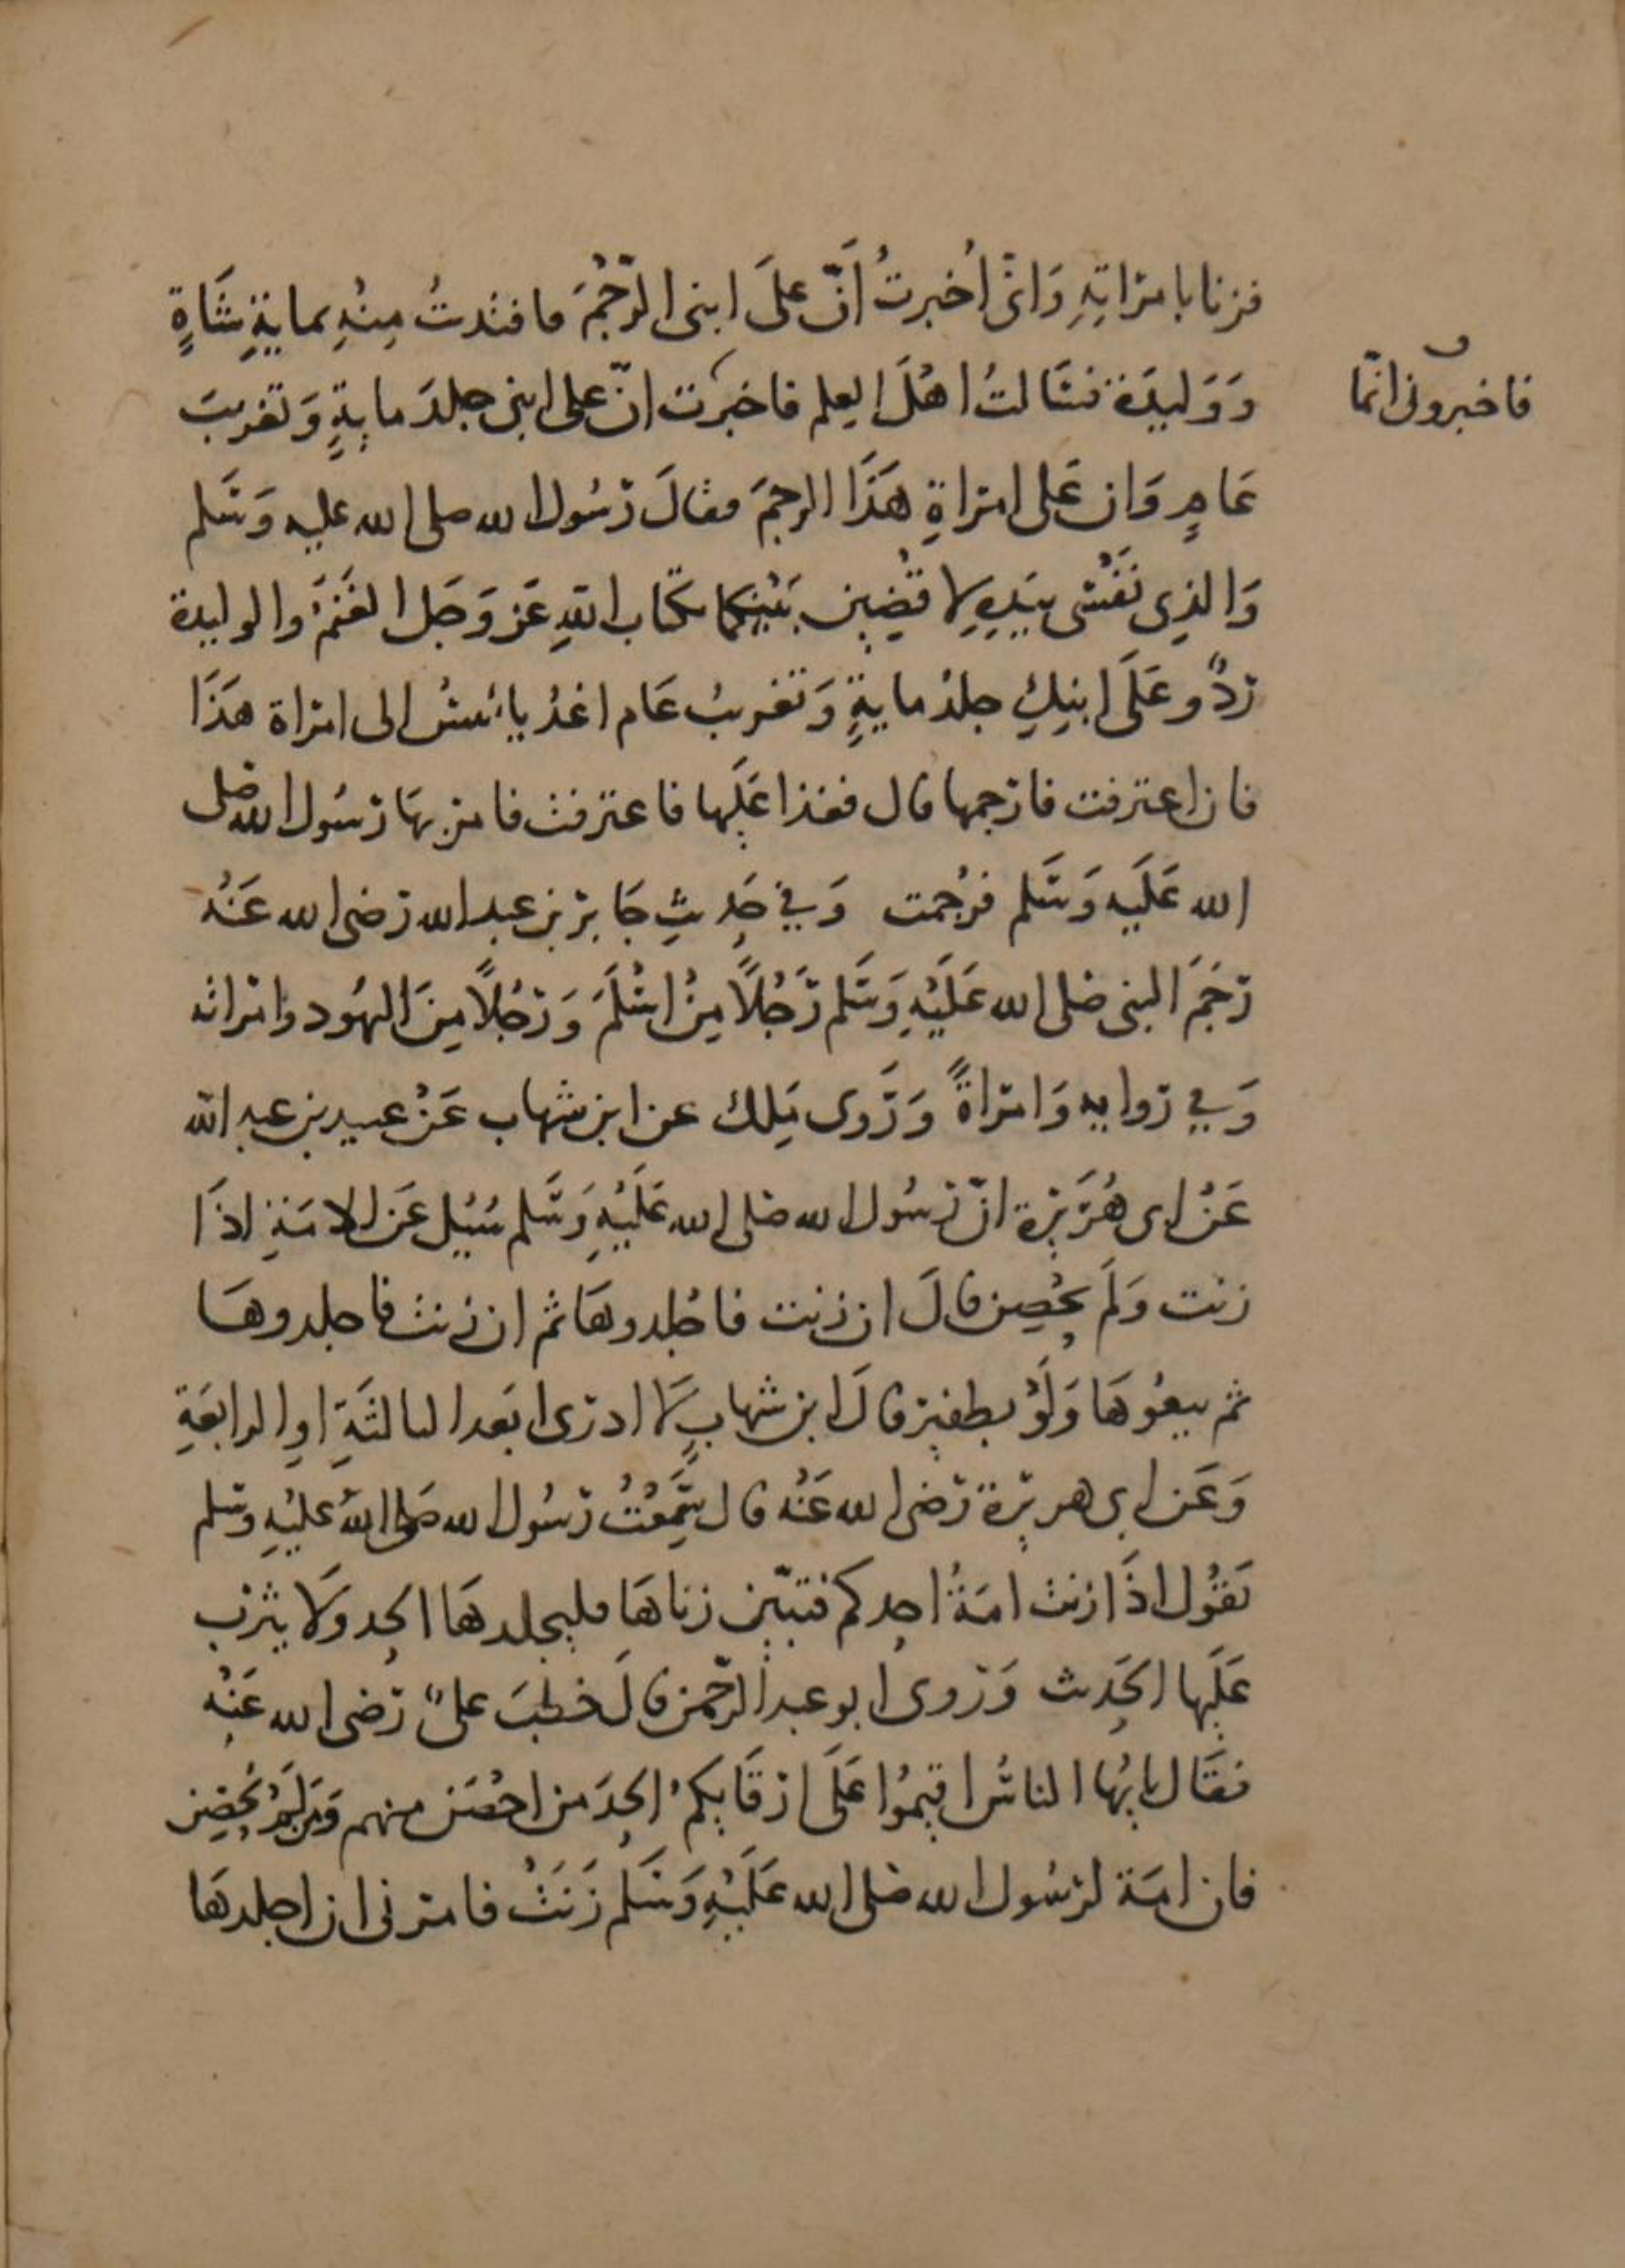 فزنا بامراتِهِ وَانّى اُخبرتُ اَنّ علَى ابنى الرّجْمَ فافتدتُ مِنْهِ بمايةِ شَاةٍ
وَوَليدَة فسَالتُ اهْلَ العِلم فاخبرت انّ على ابنى جلدَ مايةٍ وَتغريبَ
فاخبرونى انّما
عَامٍ وَان عَلى امراةِ هَذَا الرجمَ فقالَ رَسُول الله صلى الله عليه وَسَلم
وَالذِى نَفْسى بيَدِهِ لاقضِين بَيْنكما بكتاب اللهِ عَز وَجَل الغَنَمُ والوليدة
ردٌّ وعَلَى ابنِكِ جلدُ مايةٍ وَتغريبُ عَام اغدُ يا انيسُ الى امراة هَذَا
فان اعترفت فارجمها قال فغدا عَلَيها فاعترفت فامر بهَا رَسُول الله صلى
الله عَلَيه وَسَلم فرُجمت وَفي حَدِيثِ جَابر بن عبد الله رَضى الله عَنْه
رَجَمَ النبى صَلى الله عَلَيْهِ وَسَلم رَجُلًا مِنْ اسْلَمَ وَرَجُلًا مِنَ اليهُود وامراته
وَفي رواية وَامراةً وَرَوى مَلك عن ابن شهاب عَنْ عبيد بن عبد الله
عَنْ ابى هُرَيرة انّ رسُول الله صَلى الله عَلَيْهِ وَسَلم سُئِل عَن الامَةِ اذَا
زنت وَلَم تحْصِن قالَ ان زنت فاجْلِدوهَا ثم ان زنت فاجلدوهَا
ثم بيعُوهَا وَلَوْ بطفير قالَ ابن شهابٍ لَا ادرى ابَعد الثالثَةِ اوِ الرابعَةِ
وَعَن ابى هريرة رَضى الله عَنْه قال سَمِعْتُ رَسُول الله صَلى اللهُ عليْهِ وسَلم
يَقُول اذَا زنت امَةُ احدكم فتبيّن زناهَا فليجلدهَا الحِد وَلَا يثرب
عَلَيها الحَدِيث وَرَوى ابو عبد الرّحمن قالَ خطبَ علىٌّ رَضى الله عَنْهِ
فقَال يايهُا الناسُ اقِيمُوا عَلَى ارقَايكمُ الحِدَ من احْصَن منهم وَمَن لَمْ يُحْصِن
فان امَة لرسُول الله صَلى الله عَلَيْهِ وَسَلم زَنَتْ فامرنى ان اجلدهَا